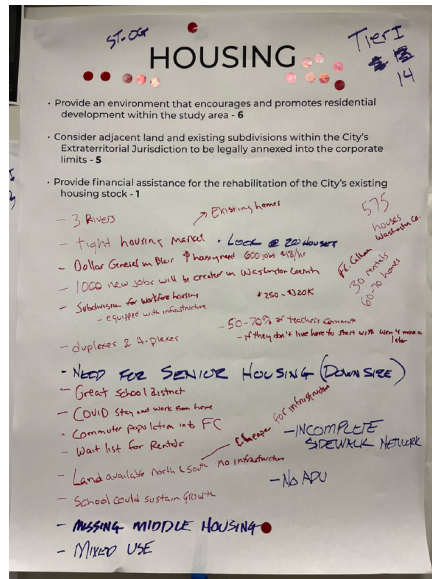 HOUSING
Tier I
14
• Provide an environment that encourages and promotes residential
development within the study area - 6
• Consider adjacent land and existing subdivisions within the City's
Extraterritorial Jurisdiction to be legally annexed into the corporate
limits - 5
• Provide financial assistance for the rehabilitation of the City's existing
housing stock - 1
- 3 Rivers
→ Existing homes
- tight housing market • LOOK @ ZONING
575
houses
Washington Co.
- Dollar General in Blair 600 jobs $18/hr
- 1000 new jobs will be created in Washington County
Ft. Calhoun
30 rentals
60-70 homes
- Subdivision for workforce housing $250-$320K
- equipped with infrastructure
- 50-70% of teachers commute
- if they don't live here to start with won't move in
later
- duplexes & 4-plexes
- NEED FOR SENIOR HOUSING (DOWNSIZE)
- Great school district
- COVID stay and work from home
- Commuter population into FC
- Wait list for Rentals
- Land available north & south no infrastructure
for infrastructure
- INCOMPLETE
SIDEWALK NETWORK
- School could sustain growth
- NO ADU
- MISSING MIDDLE HOUSING
- MIXED USE